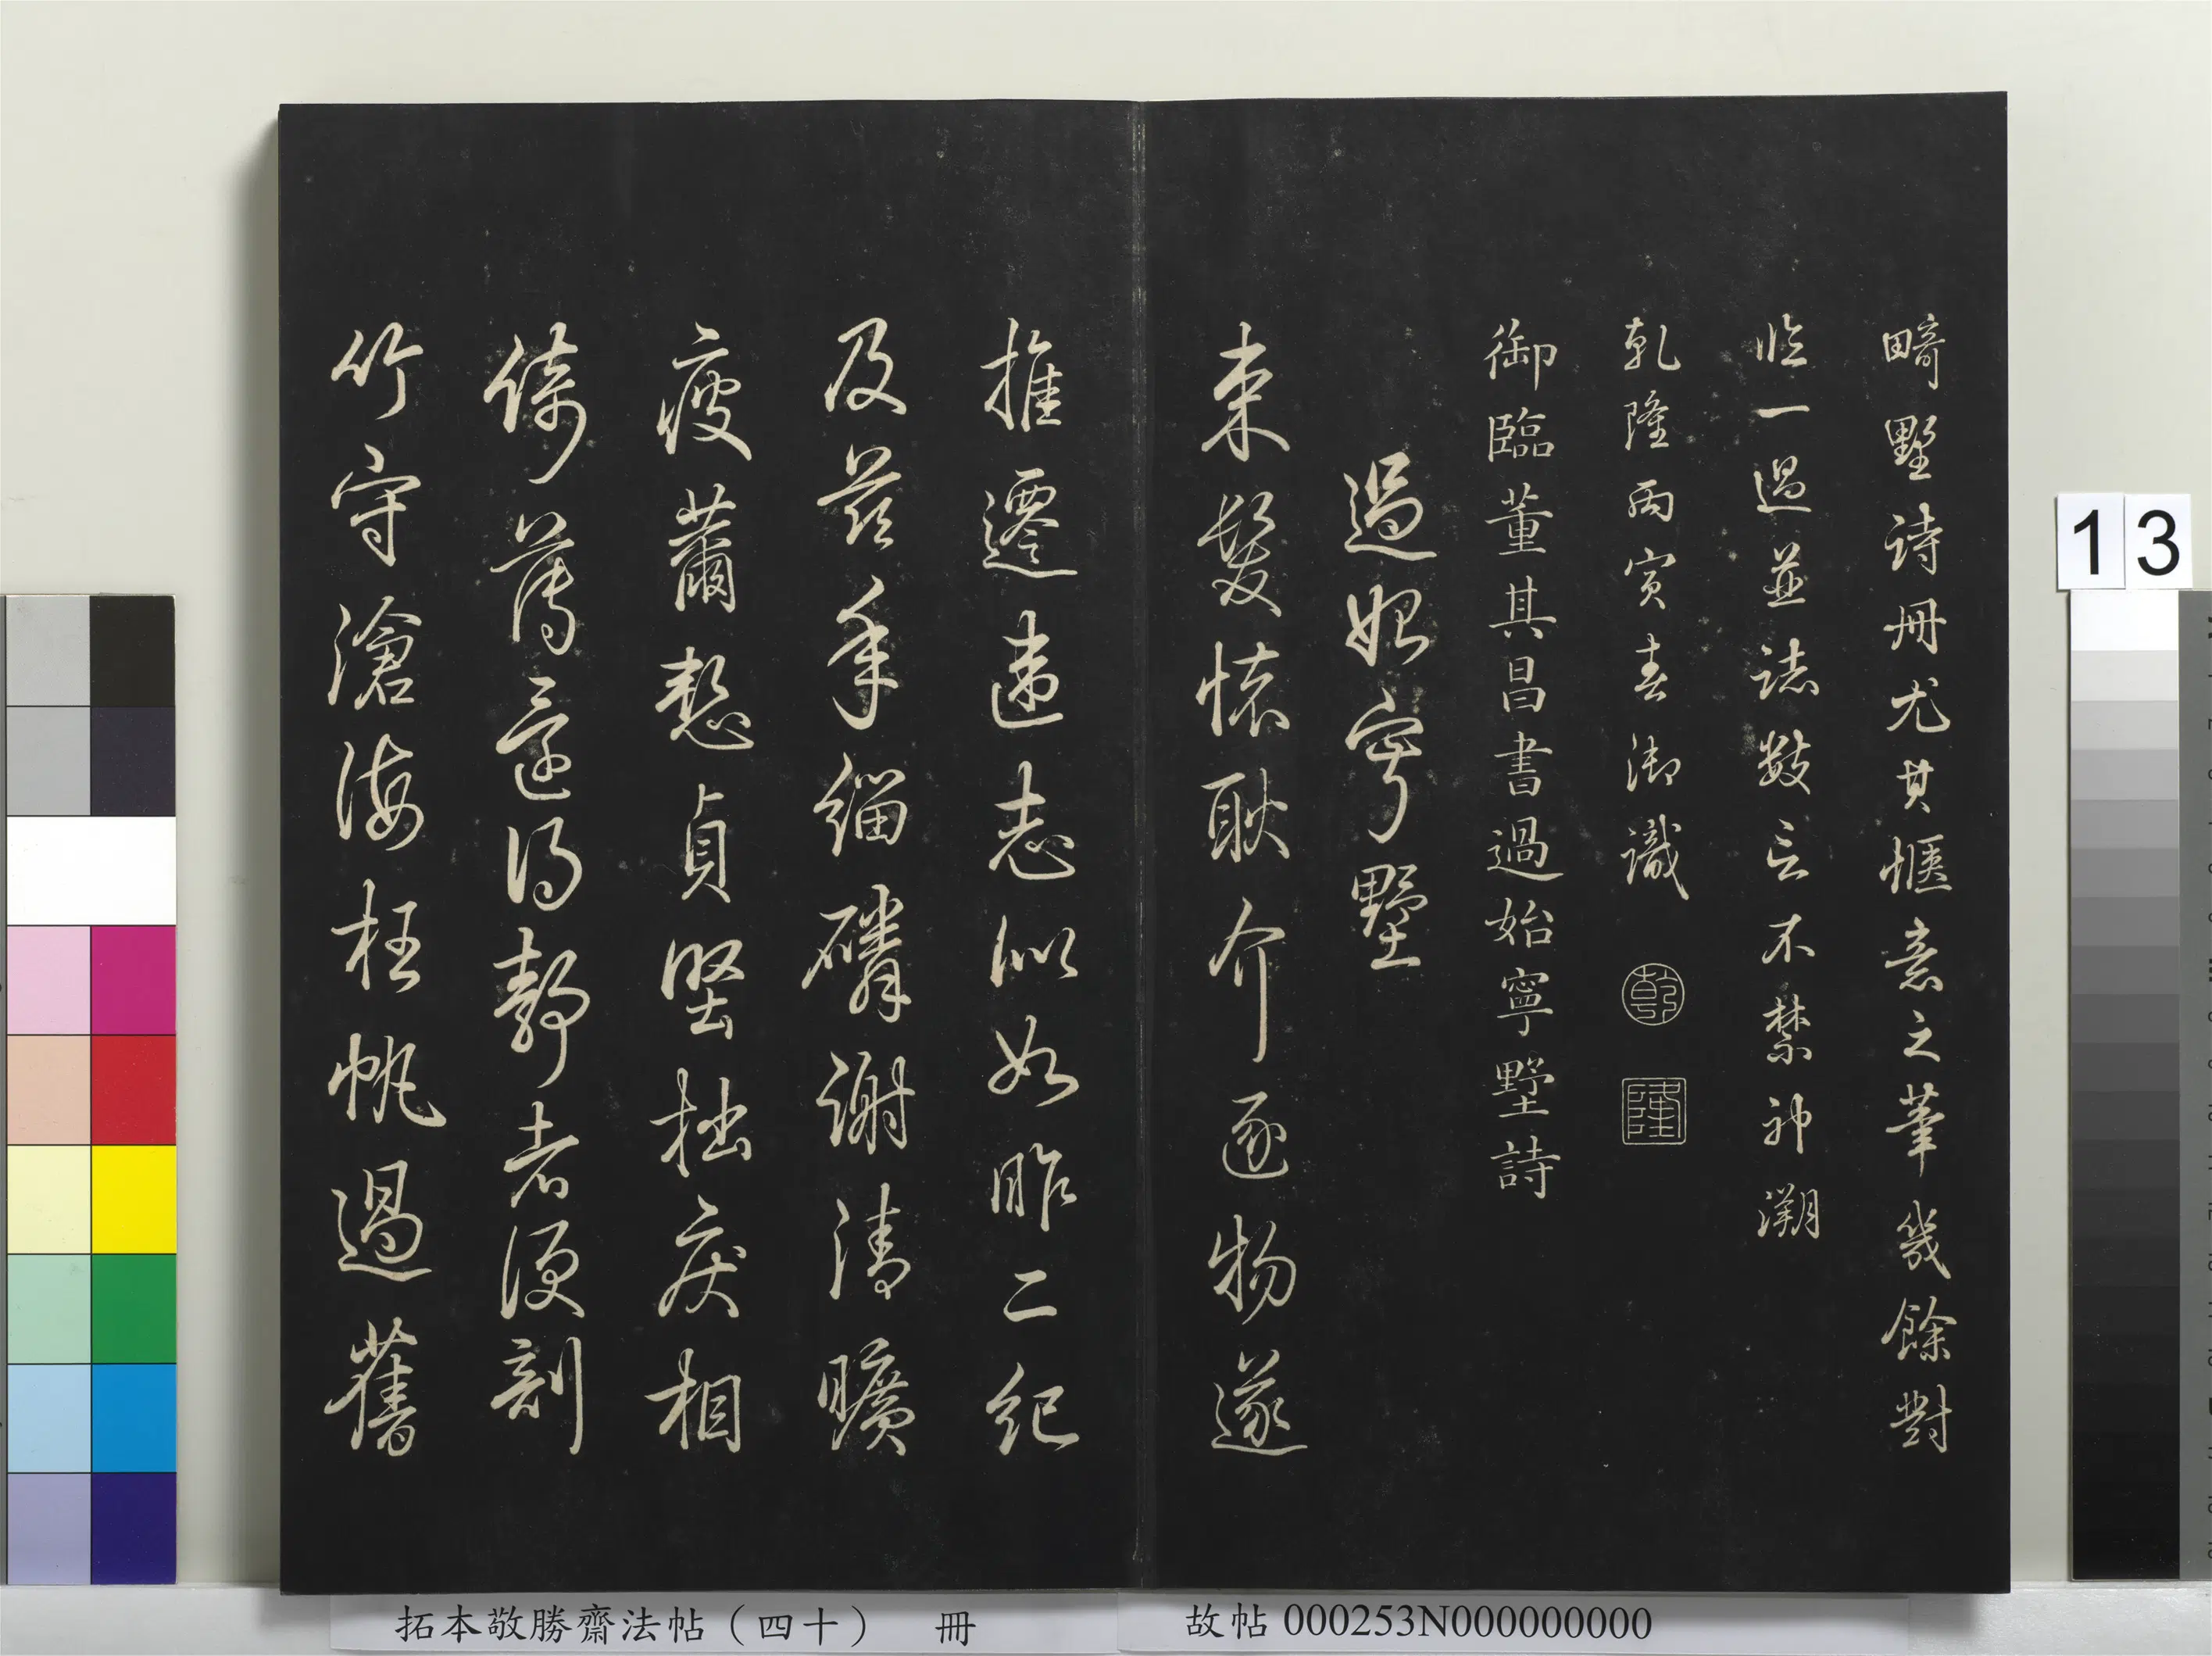 畸墅诗冊尤其惬意之筆幾餘對
临一過並誌数言不禁神溯
乾隆丙寅春御識
乾
隆
御臨董其昌書過始寧墅詩
過始寧墅
束髮懷耿介逐物遂
推遷違志似如昨二紀
及茲年緇磷謝清曠
疲薾慙貞堅拙疾相
倚薄還得靜者便剖
竹守滄海枉帆過舊
13
拓本敬勝齋法帖（四十） 冊
故帖000253N000000000